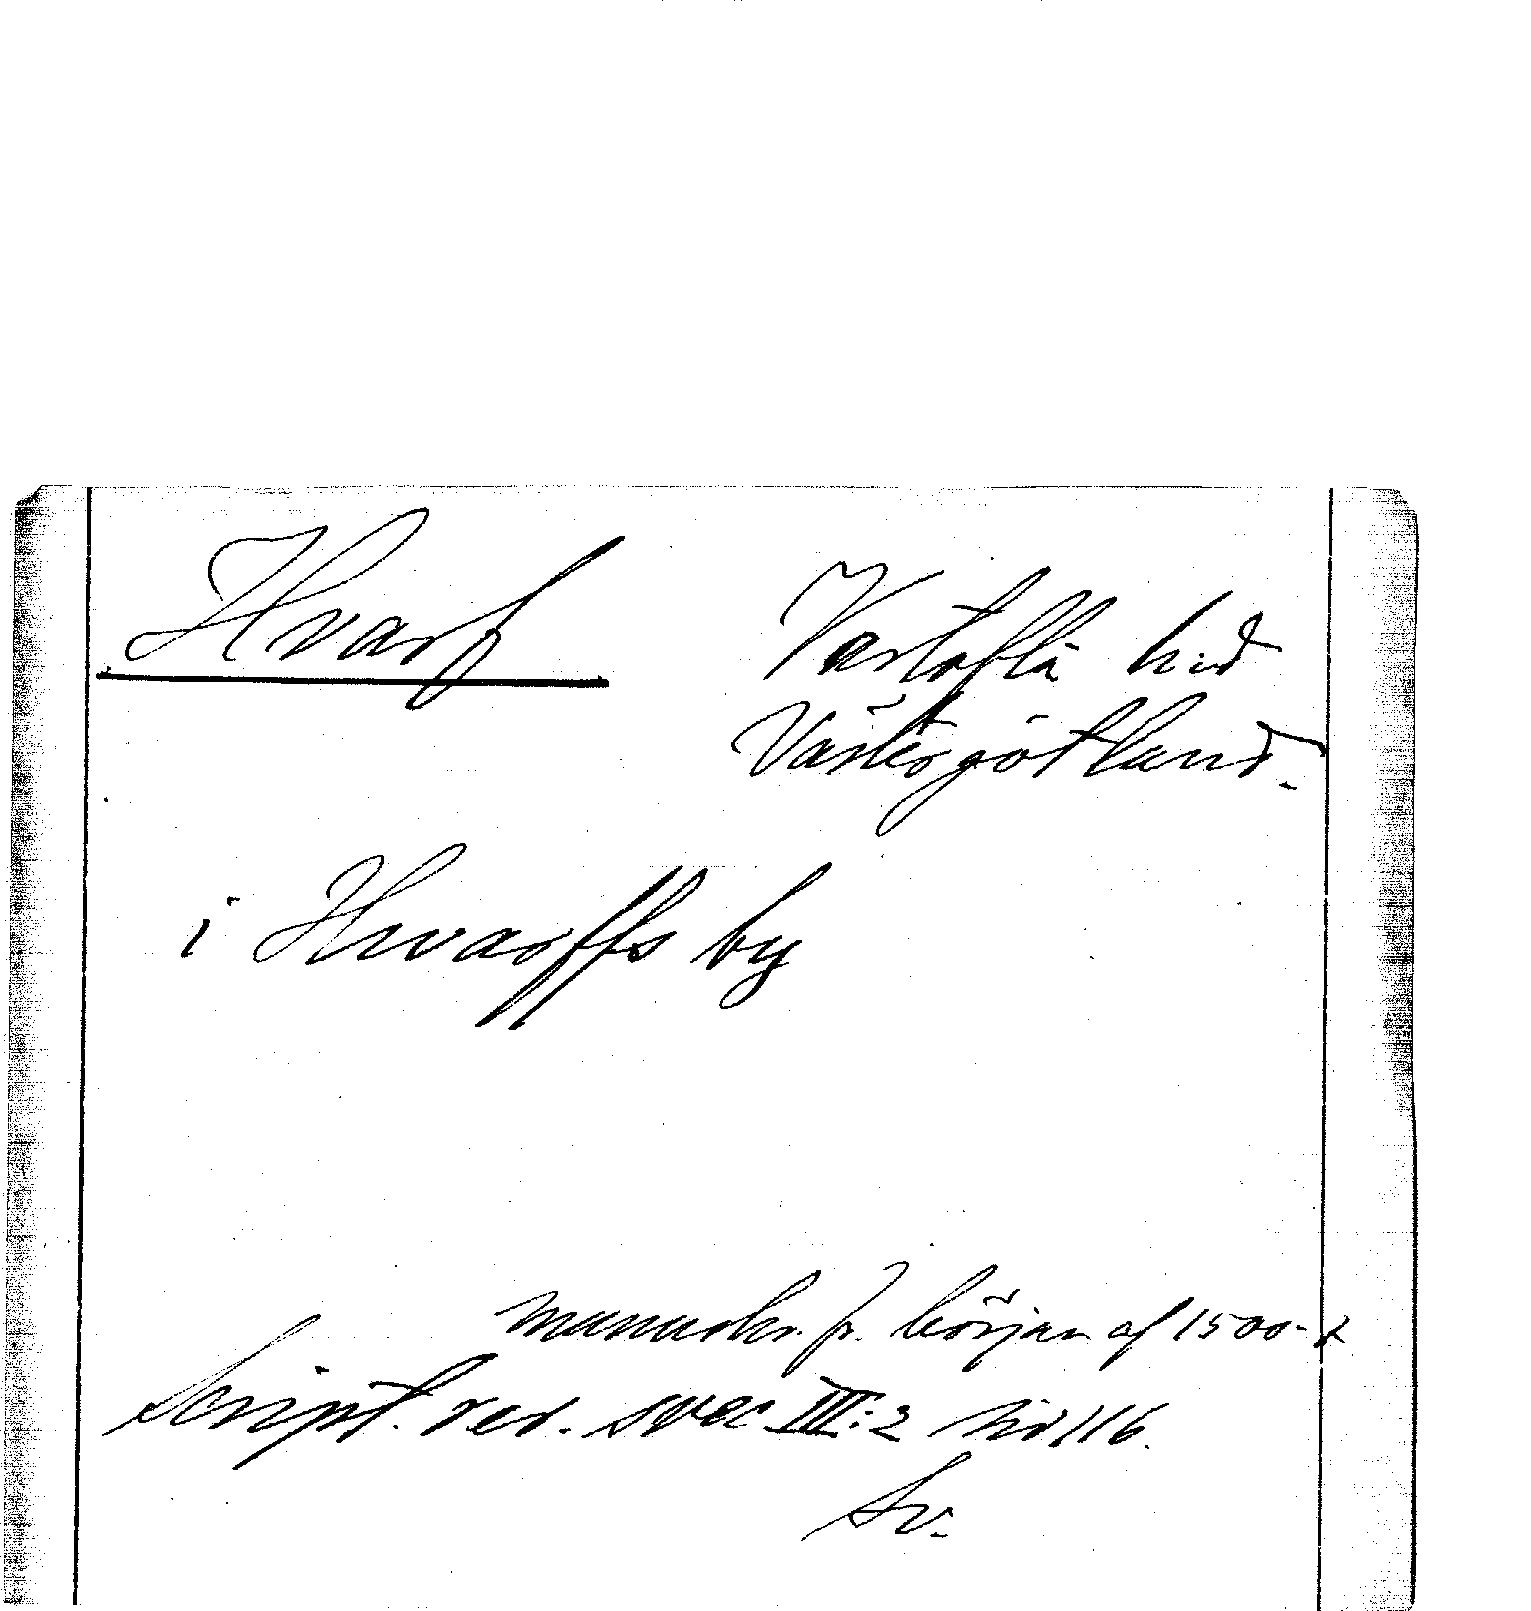 Hvarf
Vartofta h:d
Västergötland.
i Hwarffs by
manuskr. fr. början af 1500-t
Script. rer. svec III:2 sid 116.
Sv.